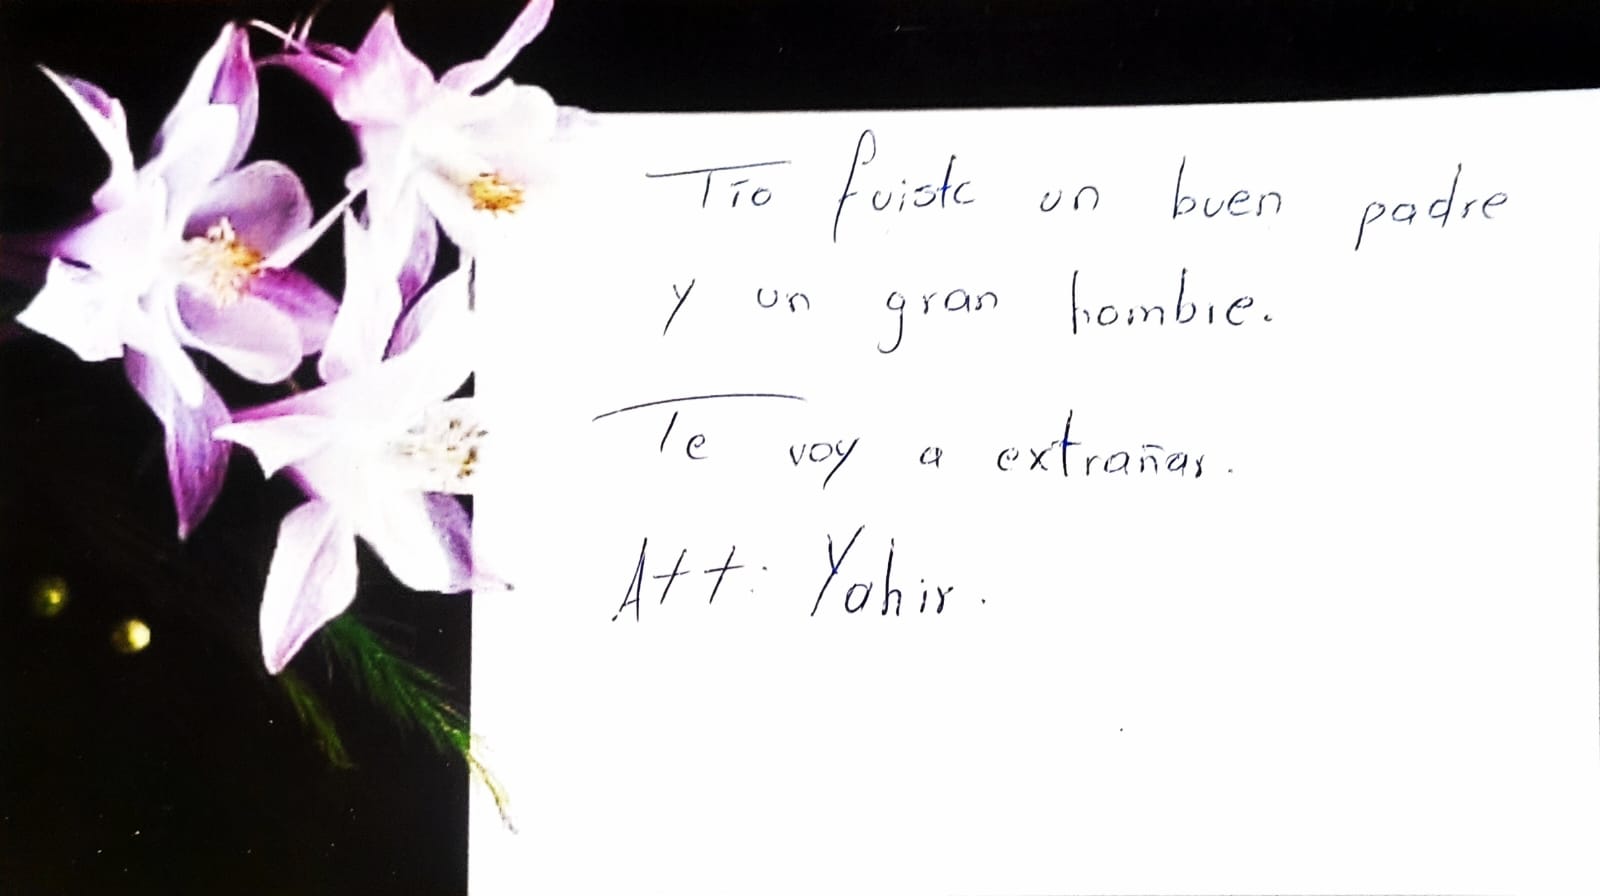 Tío fuiste un buen padre
y un gran hombre.
Te voy a extrañar.
Att: Yahir.